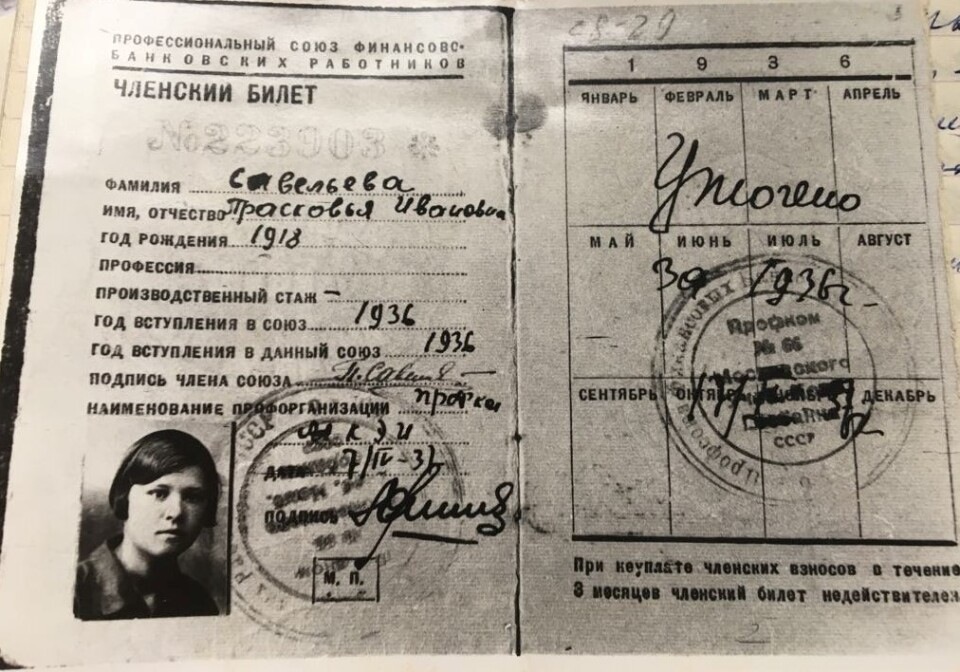 ПРОФЕССИОНАЛЬНЫЙ СОЮЗ ФИНАНСОВО-
БАНКОВСКИХ РАБОТНИКОВ
ЧЛЕНСКИЙ БИЛЕТ
№223903 *
ФАМИЛИЯ Савельева
ИМЯ, ОТЧЕСТВО Прасковья Ивановна
ГОД РОЖДЕНИЯ 1918
ПРОФЕССИЯ
ПРОИЗВОДСТВЕННЫЙ СТАЖ –
ГОД ВСТУПЛЕНИЯ В СОЮЗ 1936
ГОД ВСТУПЛЕНИЯ В ДАННЫЙ СОЮЗ 1936
ПОДПИСЬ ЧЛЕНА СОЮЗА
НАИМЕНОВАНИЕ ПРОФОРГАНИЗАЦИИ
ДАТА 7/IV-37
ПОДПИСЬ
М. П.
1 9 3 6
ЯНВАРЬ ФЕВРАЛЬ МАРТ АПРЕЛЬ
Уплочено
МАЙ ИЮНЬ ИЮЛЬ АВГУСТ
За 1936г.
Профком
№ 66
Московского
СССР
СЕНТЯБРЬ ОКТЯБРЬ ДЕКАБРЬ
При неуплате членских взносов в течение
3 месяцев членский билет недействителен